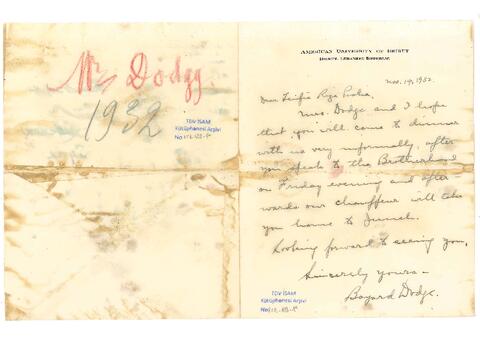 Mr Dodgg
1932
TDV İSAM
Kütüphanesi Arşivi
No
AMERICAN UNIVERSITY OF BEIRUT
BEIRUT, LEBANESE REPUBLIC
Nov. 19, 1932.
Dear Feilfi Riza Pasha,
Mrs. Dodge and I hope
that you will come to dinner
with us very informally, after
you speak to the Brotherhood
on Friday evening and after-
wards our chauffeur will take
you home to
Looking forward to seeing you,
Sincerely yours -
Bayard Dodge.
TDV İSAM
Kütüphanesi Arşivi
No